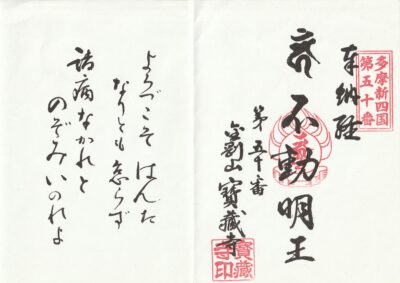 奉納経
多摩新四国
第五十番
不動明王
第五十番
金剛山 寶蔵寺
寶蔵
寺印
よろこそ はんた
なりとも 怠らず
諸病なかれと
のぞみいのれよ